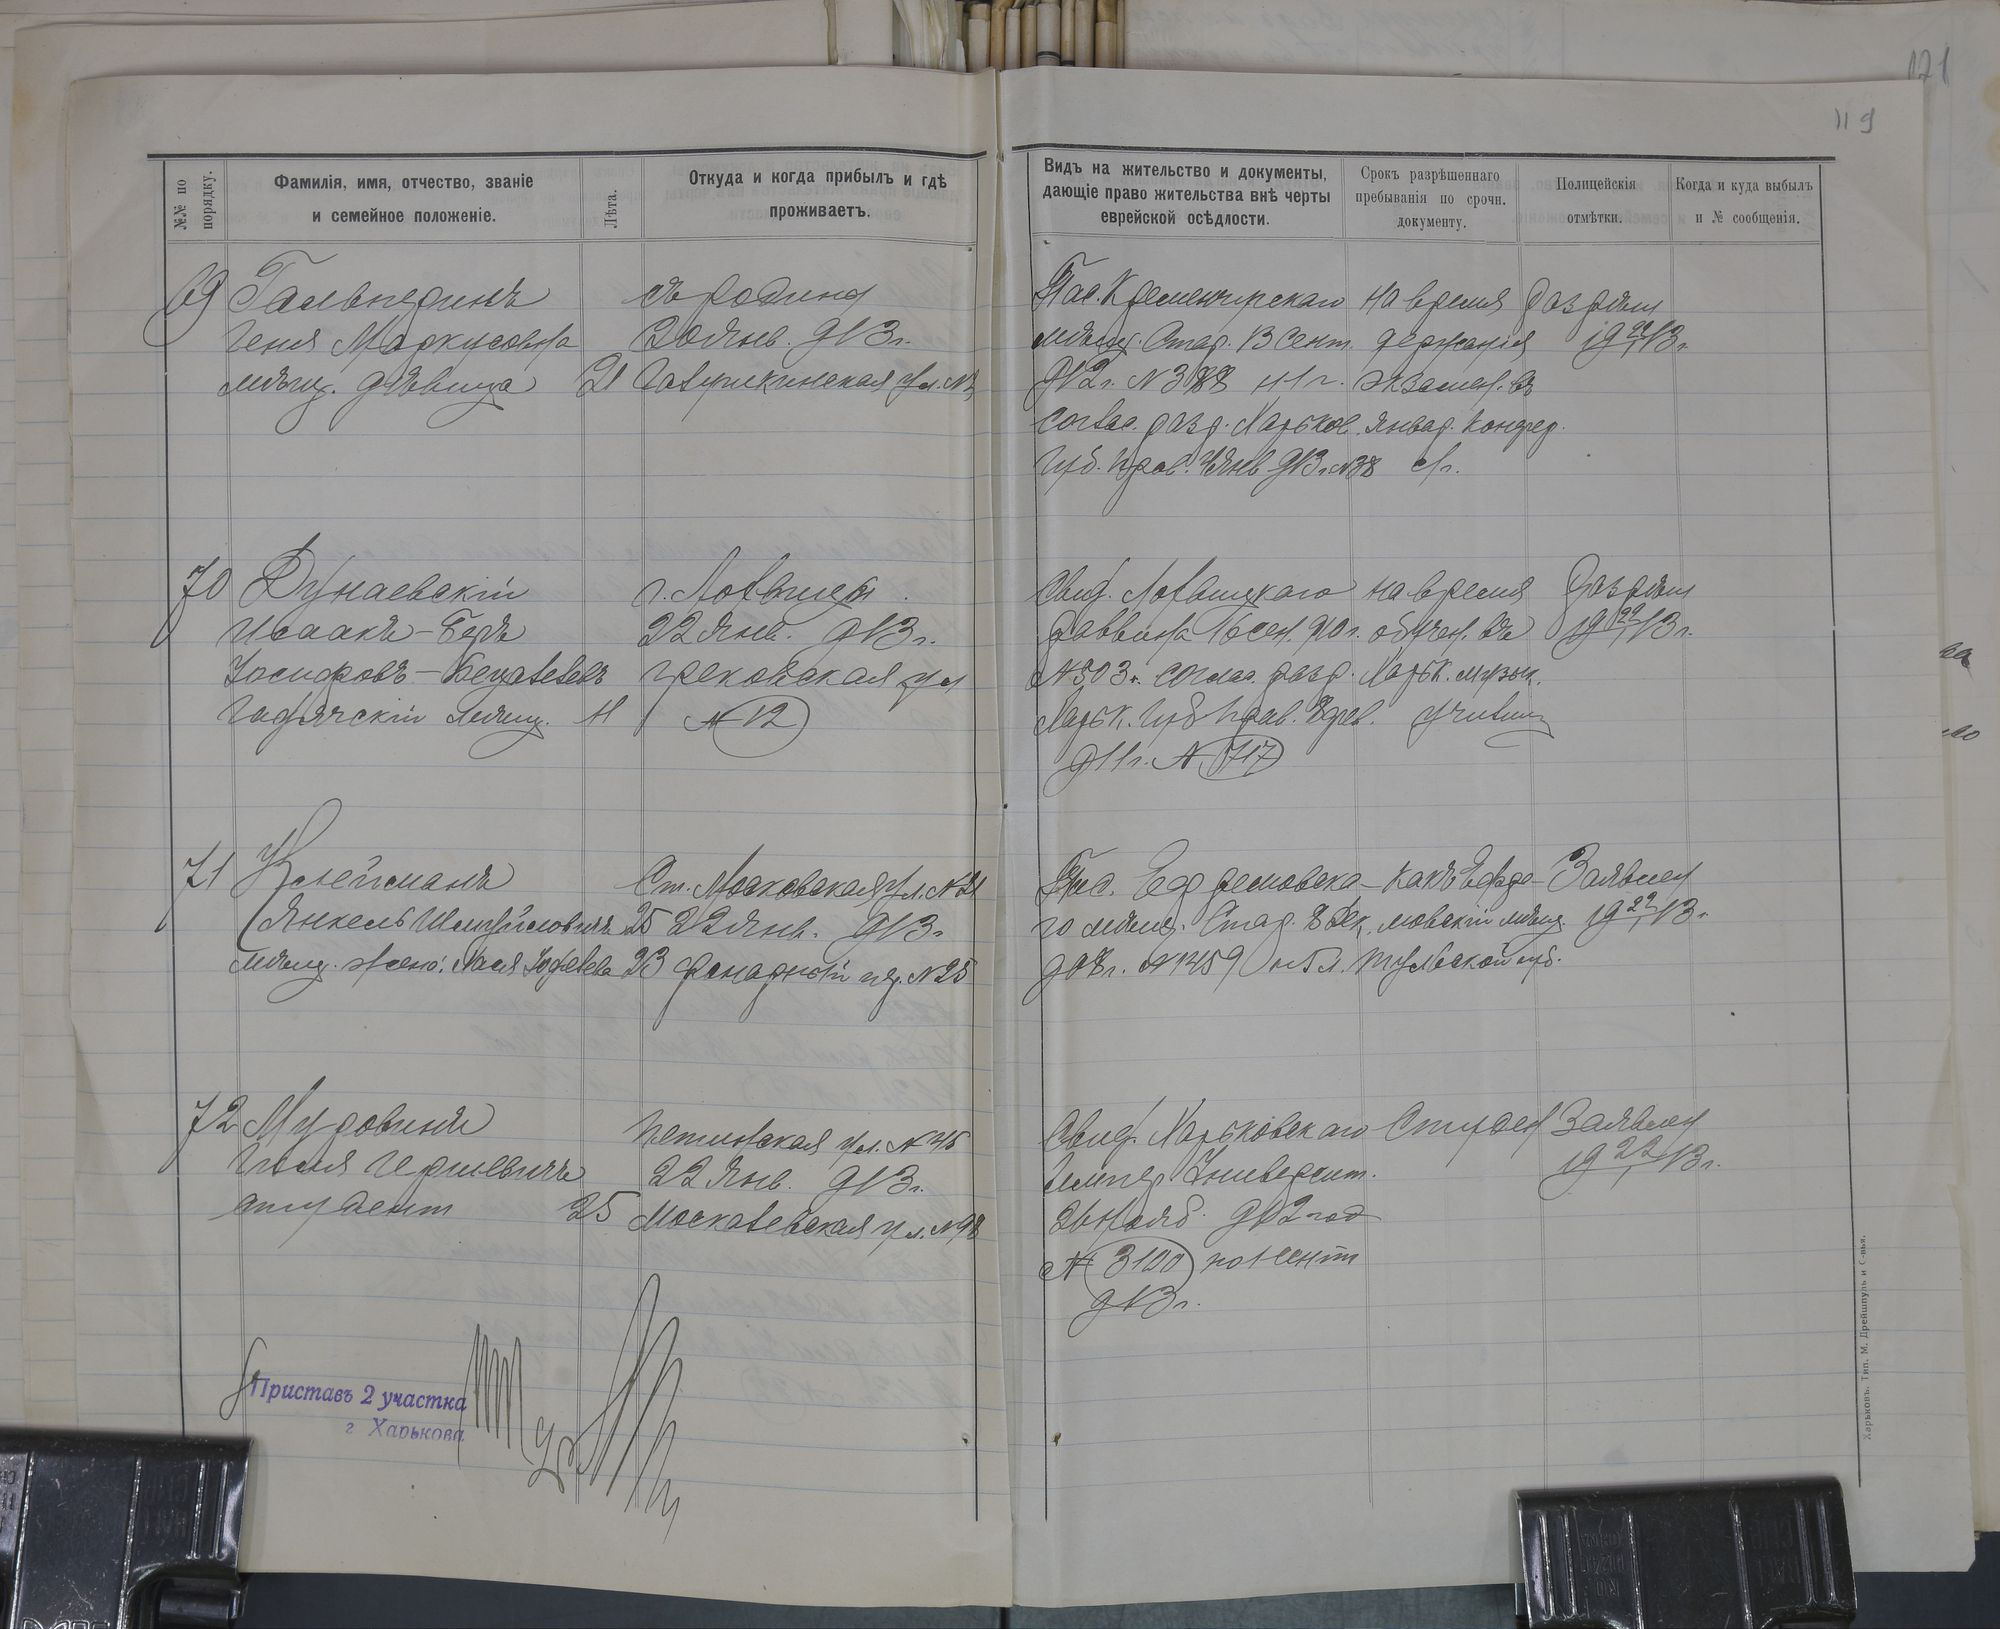 121
119
№№ по порядку.
Фамилія, имя, отчество, званіе
и семейное положеніе.
Лѣта.
Откуда и когда прибылъ и гдѣ
проживаетъ.
Видъ на жительство и документы,
дающіе право жительства внѣ черты
еврейской осѣдлости.
Срокъ разрѣшеннаго
пребыванія по срочн.
документу.
Полицейскія
отмѣтки.
Когда и куда выбылъ
и № сообщенія.
69 Гальперинъ
Геня Маркусовна
мѣщ. дѣвица 21
съ родины
20 Янв. 913 г.
Гаврикинская ул. №
Пас. Кременчугскаго
мѣщ. Стар. 13 Сент.
912 г. № 388 н 1 г.
соглас. разр. Харьков.
Губ. Прав. Янв 913 г. № 38
на время
держанія
экзамен. въ
Январ. Конфер.
с/г.
Разрѣш
19 22/I 13 г.
70 Дунаевскій
Исаакъ-Беръ
Іосифовъ-Бецалелевъ
Гадячскій мѣщ. 11
г. Лохвицы
22 Янв. 913 г.
Грековская ул
№ 12
Свид. Лохвицкаго
раввина 16 сен. 910 г.
№ 503 г. соглас. разр.
Харьк. Губ Прав. 8 фев.
911 г. № 717
на время
обучен. въ
Харьк. музык.
училищ
Разрѣш
19 22/I 13 г.
71 Клейманъ
Янкель Шмуйловичъ 25
мѣщ. жена: Хася Іофелева 23
Ст. Московская ул. № 21
22 Янв. 913 г.
Фонарный пер. № 25
Пас. Ефремовска-
го мѣщ. Стар. 8 Дек.
908 г. № 1459 н 5 л.
какъ Ефре-
мовскій мѣщ.
Тульской губ.
Заявлен
19 22/I 13 г.
72 Муровини
студент 25
Петинская ул. № 45
22 Янв. 913 г.
Москалевская ул. № 98
Свид. Харьковскаго
Импер. Университ.
26 Нояб. 912 год
№ 3100 по 1 Сент
913 г.
Студен
Заявлен
19 22/I 13 г.
Приставъ 2 участка
г Харькова
Харьковъ. Тип. М. Дрейшпуль и С-вья.